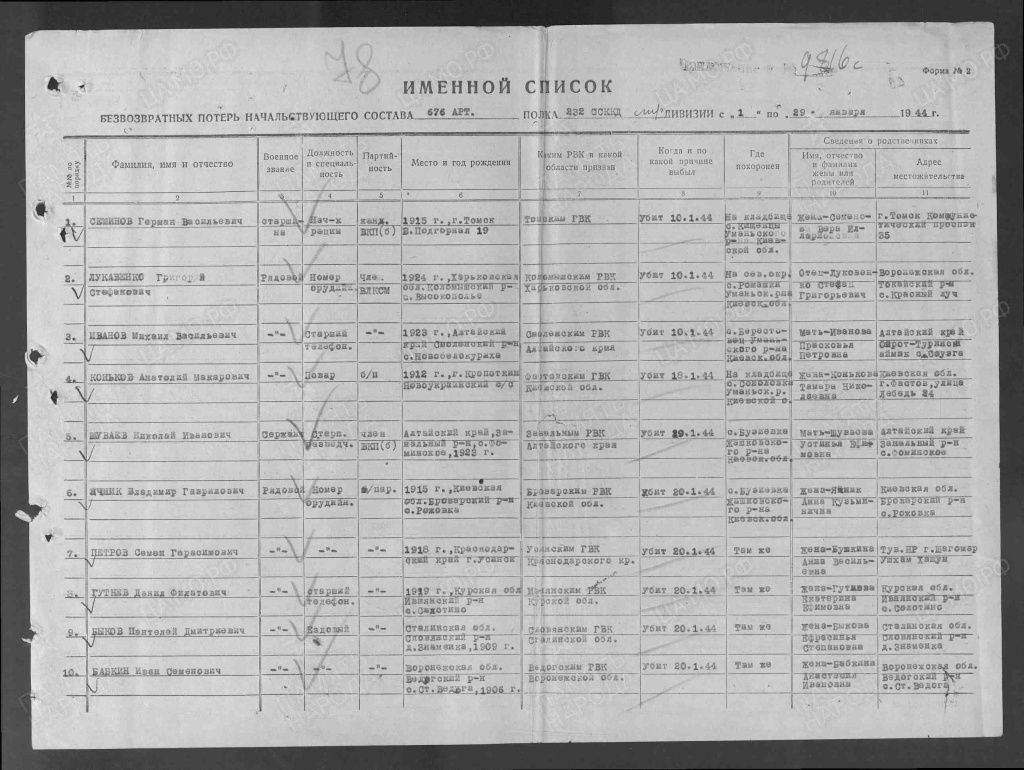 78
9816с
Форма № 2
ИМЕННОЙ СПИСОК
БЕЗВОЗВРАТНЫХ ПОТЕРЬ НАЧАЛЬСТВУЮЩЕГО СОСТАВА 676 АРТ. ПОЛКА 232 ССККД ДИВИЗИИ с „1 " по 29 " января 1944 г.
№№ по порядку
Фамилия, имя и отчество
Военное звание
Должность и специальность
Партийность
Место и год рождения
Каким РВК и какой области призван
Когда и по какой причине выбыл
Где похоронен
Сведения о родственниках
Имя, отчество и фамилия жены или родителей
Адрес местожительства
1 2 3 4 5 6 7 8 9 10 11
1. СЕМИНОВ Герман Васильевич старши- Нач-к канд. 1915 г.,г.Томск Томским ГВК Убит 10.1.44 На кладбище Жена-Семено- г.Томск Коммуни-
на рации ВКП(б) Б.Подгорная 19 с.Кищенцы ва Вера Ил- тический проспек
Уманьского ларионовна 35
р-на Киев-
ской обл.
2. ЛУКАВЕНКО Григорий Рядовой Номер Член 1924 г.,Харьковская Коломышским РВК Убит 10.1.44 На сев.окр. Отец-Луковен- Воронежская обл.
Стефанович орудийн. ВЛКСМ обл.Коломышским р- Харьковской обл. с.Романки ко Стефан Токайский р-н
с.Высокополье Уманьск.рна Григорьевич с.Красный луч
Киевск.обл.
3. ИВАНОВ Михаил Васильевич -"- Старший -"- 1923 г.,Алтайский Смоленским РВК Убит 10.1.44 с.Бересто- Мать-Иванова Алтайский край
телефон. край Смоленский р-н Алтайского края вец Умань- Прасковья Ойрот-Туринский
с.Новобелокуриха ского р-на Петровна аймак с.Соузга
Киевск.обл.
4. КОНЬКОВ Анатолий Макарович -"- Повар б/п 1912 г.,г.Кропоткин Фастовским ГВК Убит 18.1.44 На кладбище Жена-Конькова Киевская обл.
Новоукраинский с/с Киевской обл. с.Соколовка Тамара Нико- г.Фастов,улица
Уманьск.р. лаевна Лебедь 24
Киевской о.
5. ШУВАЕВ Николай Иванович Сержант Старш. член Алтайский край,За- Завальным РВК Убит 19.1.44 с.Бузиевка Мать-Шуваева Алтайский край
разведч. ВКП(б) вальный р-н,с.Фо- Алтайского края Жашковско- Устинья Ефи- Завальный р-н
минское,1923 г. го р-на мовна с.Фоминское
Киевск.обл.
6. ЯЧНИК Владимир Гаврилович Рядовой Номер б/пар. 1915 г.,Киевская Броварским РВК Убит 20.1.44 с.Бузиевка Жена-Ячник Киевская обл.
орудийн. обл.Броварский р-н Киевской обл. Жашковско- Анна Кузьми- Броварский р-н
с.Рожовка го р-на нична с.Рожовка
Киевск.обл.
7. ПЕТРОВ Семен Герасимович -"- -"- -"- 1918 г.,Краснодар- ГВК Убит 20.1.44 Там же Жена-Бушкина Тув.НР г.Шагомар
ский край г.Усинск Краснодарского кр. Анна Василь- Ушхам Хацун
евна
8. ГУТНЕВ Данил Филатович -"- старший -"- 1919 г.,Курская обл Ивнянским РВК Убит 20.1.44 Там же Жена-Гутнева Курская обл.
телефон. Ивнянский р-н Курской обл. Екатерина Ивнянский р-н
с.Сахотино Ефимовна с.Солотино
9. БЫКОВ Пантелей Дмитриевич -"- Ездовый -"- Сталинская обл. Словянским ГВК Убит 20.1.44 Там же Жена-Быкова Сталинская обл.
Словянский р-н Сталинской обл. Ефрасинья Словянский р-н
д.Знаменка,1909 г. Степановна д.Знаменка
10. БАБКИН Иван Семенович -"- -"- -"- Воронежская обл. Ведогским РВК Убит 20.1.44 Там же Жена-Бабкина Воронежская обл.
Ведогский р-н Воронежской обл. Анастасия Ведогский р-н
с.Ст.Ведьга,1906 г. Ивановна с.Ст.Ведога